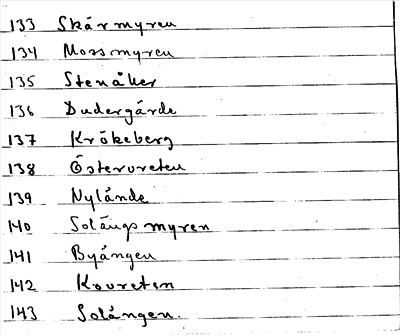 133 Skármyren
134 Mossmyren
135 Stenåker
136 Dudergárde
137 Krákeberg
138 Östervreten
139 Nylánde
140 Solängsmyren
141 Byángen
142 Kovreten
143 Solángen.